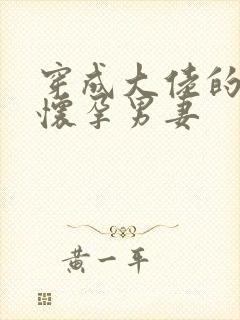 穿成大佬的
懷孕男妻
黃一平